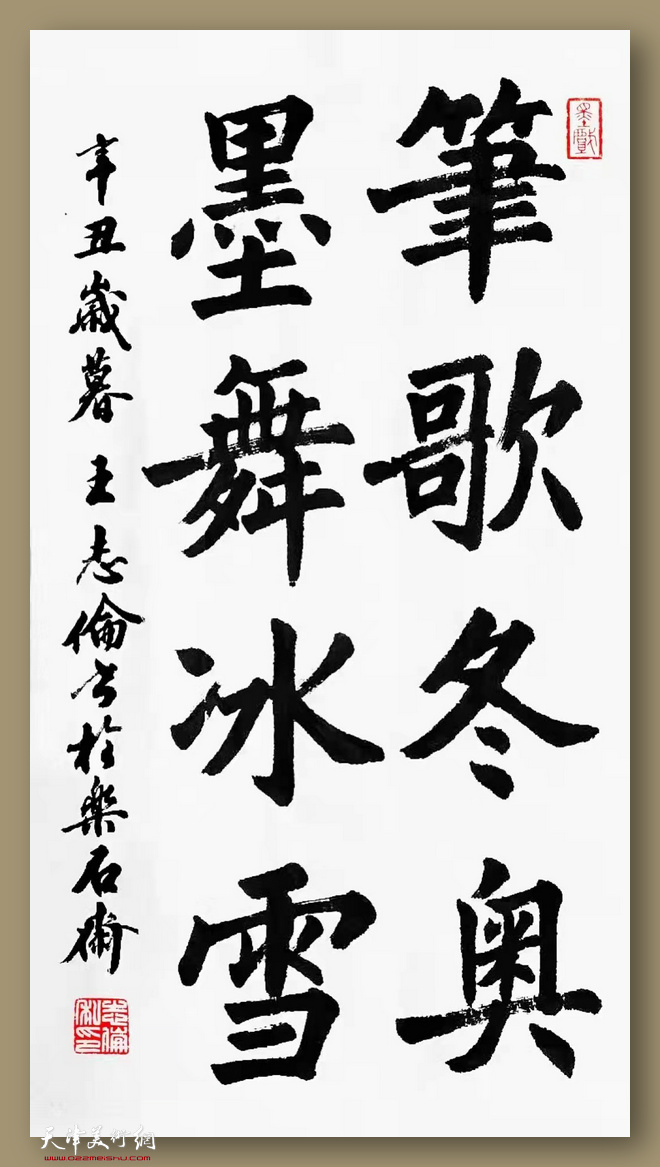 墨戲
筆歌冬奥
墨舞冰雪
辛丑歲暮王志倫書於樂石
志倫私印
天津美術網
www.022meishu.com